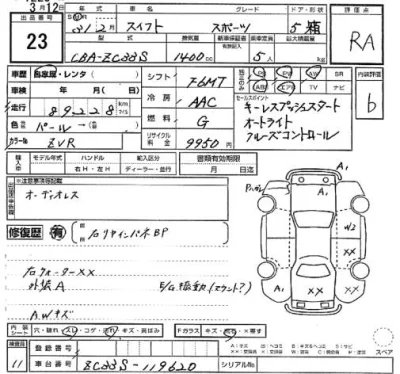 3月12日
出品番号 23
年式 ドア・形状 グレード 評価点
スイフト スポーツ 5 箱 RA
型式 排気量 乗車定員 最大積載量
CBA-ZC33S 1400 5人
車歴 自家用・レンタ シフト F6MT
車検 年 月(年 月) 冷房 AAC
走行 89,228 km 燃料 G
色 パール→( ) リサイクル料金 9950円
カラーNo. ZVR
PS PW AW SR
AB エアB TV ナビ
内装評価 b
セールスポイント
キーレスプッシュスタート
オートライト
クルーズコントロール
輸入車 モデル年式 ハンドル 輸入区分 書類有効期限
年 右H・左H ディーラー・並行 月 日迄
※注意事項等記載
オーディオレス
修復歴 有 右リヤインパネBP
右クォーターXX
外装A E/G振動(スラント?)
AWキズ
A1
W2
XX
XX
A1
内装シート 穴・破れ・スレ・コゲ・汚れ・キズ・異ばみ Fガラス キズ・飛石・X要す
スペア
検査員 11 登録番号
車台番号 ZC33S-119620 シリアルNo.